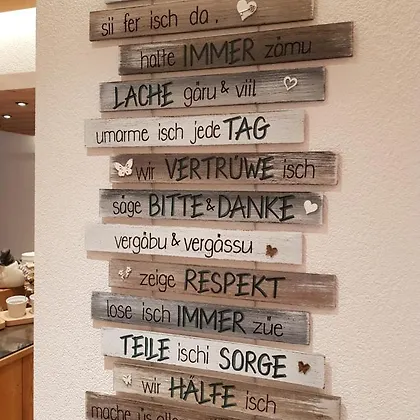 sii fer isch da.
halte IMMER zämu
LACHE gäru & viil
umarme isch jede TAG
wir VERTRÚWE isch
säge BITTE & DANKE
vergäbu & vergässu
zeige RESPEKT
lose isch IMMER züe
TEILE ischi SORGE
wir HÄLFE isch
mache üs alles